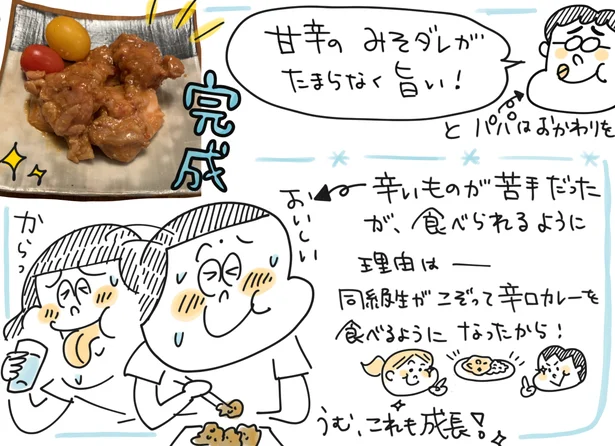 甘辛の みそダレが
たまらなく 旨い!
と パパはおかわりを
完成
辛いものが苦手だった
が、食べられるように
理由は――
同級生がこぞって辛口カレーを
食べるように なったから!
おいしい
からっ
うむ、これも成長!